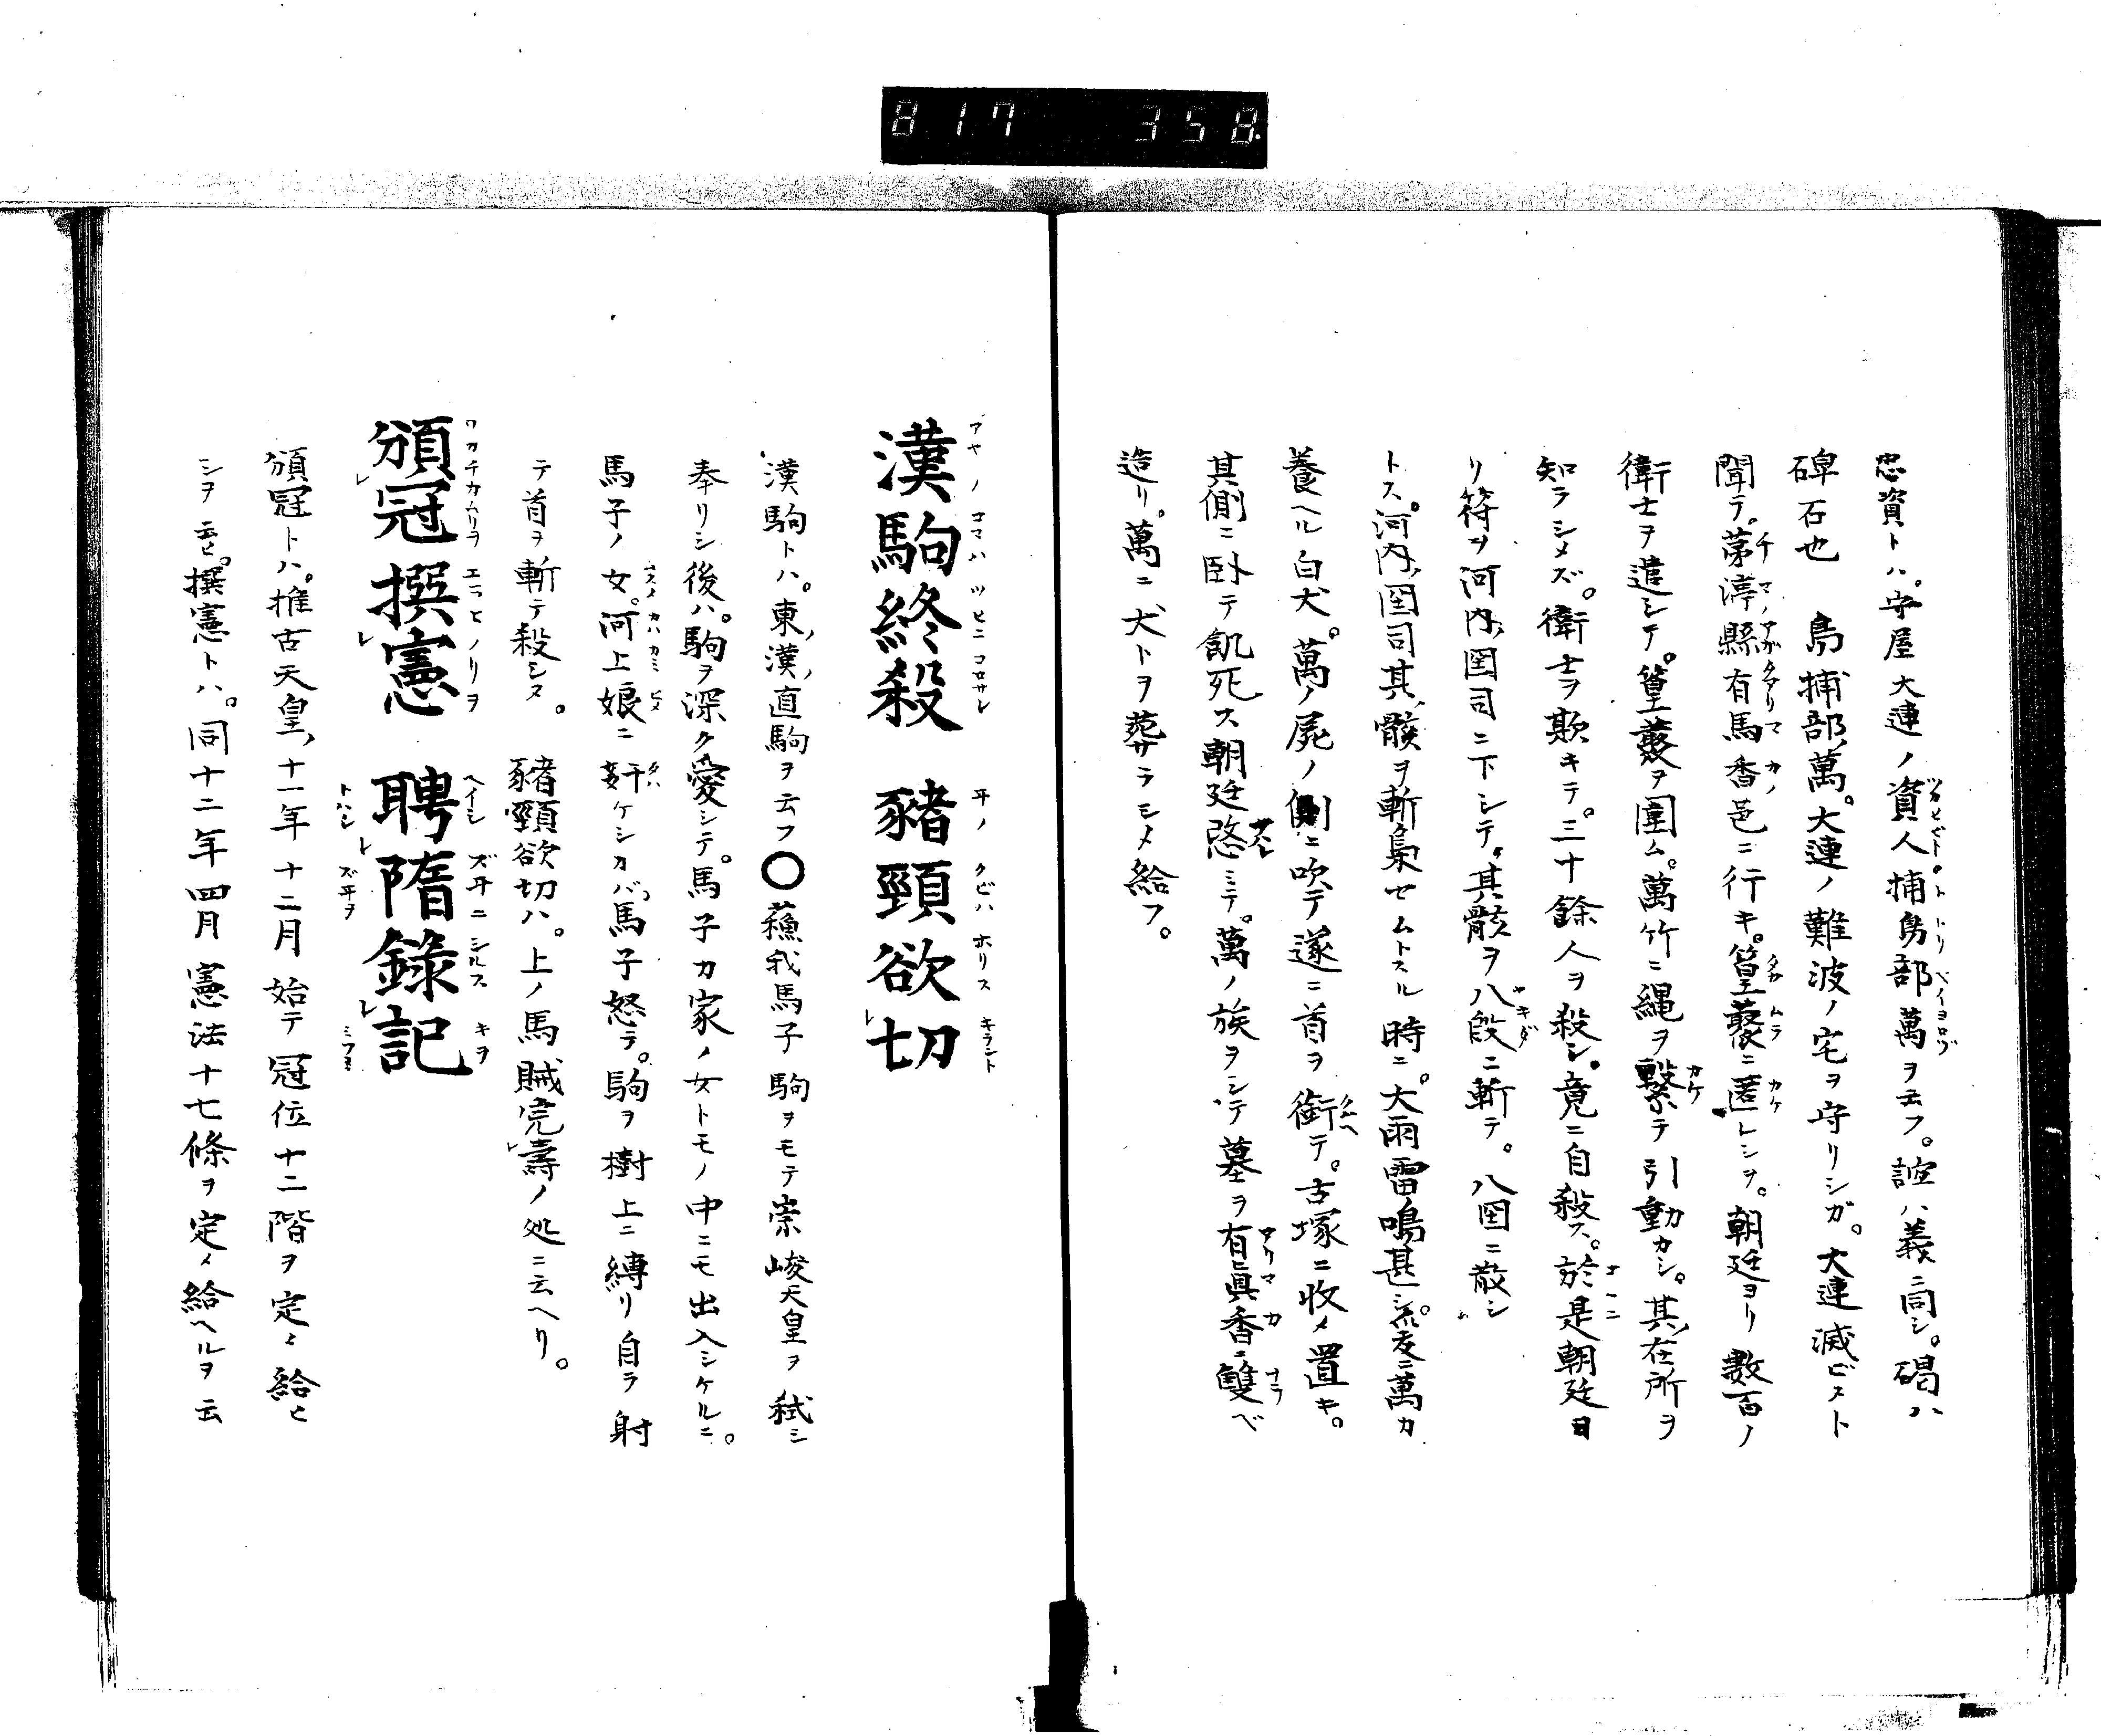 817 358
忠資トハ。守屋大連ノ資人捕鳥部萬ヲ云フ。誼ハ義ニ同シ。碣ハ
碑石也 鳥捕部萬。大連ノ難波ノ宅ヲ守リシガ。大連滅ビヌト
聞テ。茅渟縣有馬香邑ニ行キ。篁藂ニ匿レシヲ。朝廷ヨリ數百ノ
衛士ヲ遣シテ。篁藂ヲ圍ム。萬竹ニ縄ヲ繫テ引動カシ。其在所ヲ
知ラシメズ。衛士ヲ欺キテ。三十餘人ヲ殺シ。竟ニ自殺ス。於是朝廷ヨ
リ符ヲ河内國司ニ下シテ。其骸ヲ八段ニ斬テ。八國ニ散シ
トス。河内國司其骸ヲ斬梟セムトスル時ニ。大雨雷鳴甚シ。爰ニ萬カ
養ヘル白犬。萬ノ屍ノ側ニ吠テ遂ニ首ヲ銜テ。古塚ニ收メ置キ。
其側ニ臥テ飢死ス朝廷愍ミテ。萬ノ族ヲシテ墓ヲ有眞香ニ雙ベ
造リ。萬ニ犬トヲ葬サラモメ給フ。
漢駒終殺 豬頸欲切
アヤノコマハ ツヒニコロサレ 平ノクビハ ホリスキラント
漢駒トハ。東ノ漢ノ直駒ヲ云フ〇蘓我馬子駒ヲモテ崇峻天皇ヲ弑シ
奉リシ後ハ。駒ヲ深ク愛シテ。馬子カ家ノ女トモノ中ニモ出入シケルニ。
馬子ノ女。河上娘ニ姧ケシカバ。馬子怒テ。駒ヲ樹上ニ縛リ自ラ射
テ首ヲ斬テ殺シヌ。 豬頸欲切ハ。上ノ馬賊完壽ノ処ニ云ヘリ。
頒冠撰憲 聘隋録記
ワカチカムリヲ エラヒノリヲ ヘイシ ズ井ニシルス キヲ
トハレ ズ井ヲ ミフヨ
頒冠トハ。推古天皇、十一年十二月始テ冠位十二階ヲ定メ給ヒ
シヲ云ヒ。撰憲トハ。同十二年四月憲法十七條ヲ定メ給ヘルヲ云